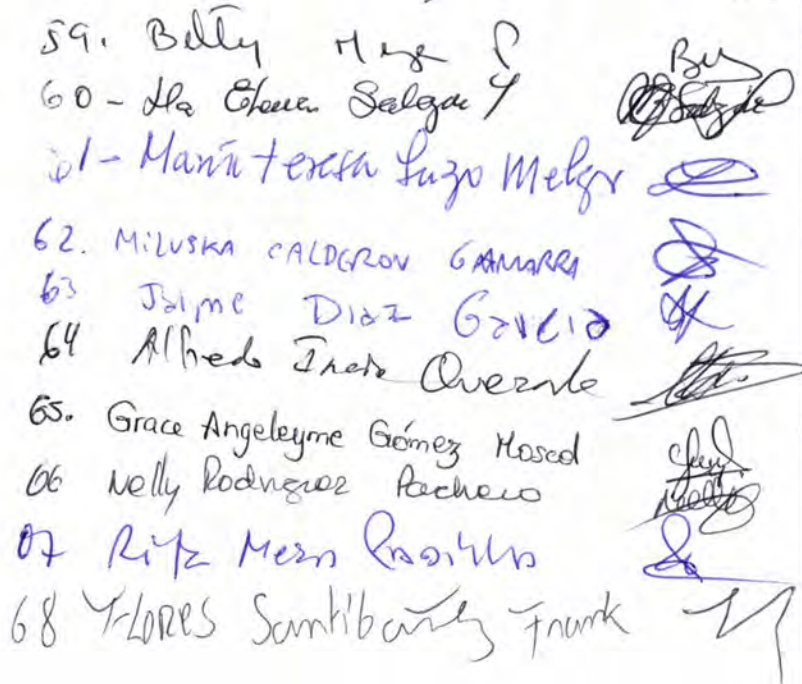 59. Betty Meza P
60 - Ma Elena Salazar Y
61 - Maria teresa Lazo Melgar
62. MILUSKA CALDERON GAMARRA
63 Jaime Diaz Garcia
64 Alfredo
65. Grace Angeleyme Gómez Moscol
66 Nelly Rodriguez Pacheco
67 Rita Meza
68 FLORES Santibañez Frank